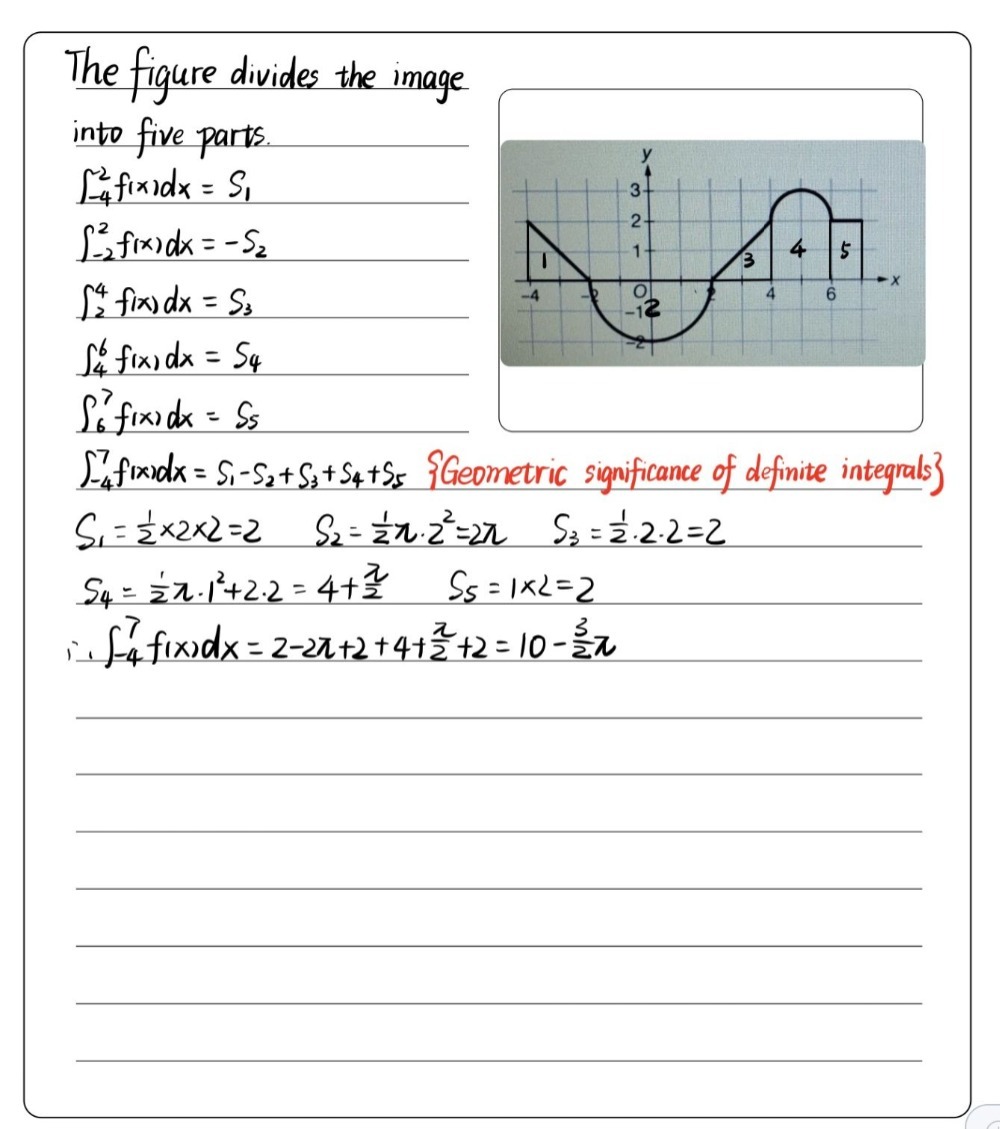 The figure divides the image
into five parts.
∫₋₄⁻² f(x)dx = S₁
∫₋₂² f(x)dx = -S₂
∫₂⁴ f(x)dx = S₃
∫₄⁶ f(x)dx = S₄
∫₆⁷ f(x)dx = S₅
∫₋₄⁷ f(x)dx = S₁-S₂+S₃+S₄+S₅ {Geometric significance of definite integrals}
S₁ = ½×2×2=2 S₂ = ½π·2²=2π S₃ = ½·2·2=2
S₄ = ½π·1²+2·2 = 4+π/2 S₅ = 1×2=2
∴ ∫₋₄⁷ f(x)dx = 2-2π+2+4+π/2+2 = 10-3/2π
y
3
2
1 4 5
1 3
-4 -2 O 2 4 6 x
-1 2
-2